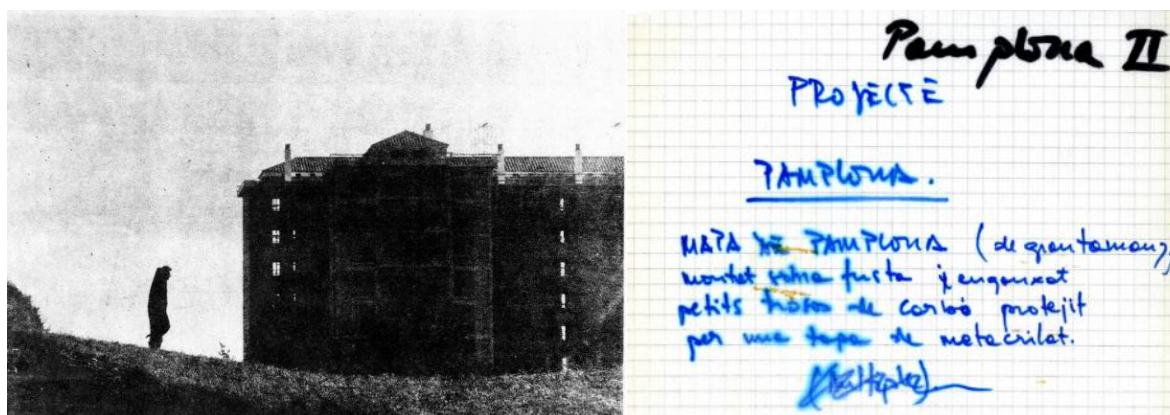 Pamplona II
PROJECTE
PAMPLONA.
MAPA DE PAMPLONA (de gran tamany)
montat sobre fusta y enganxat
petits trosos de carbó protejit
per una tapa de metacrilat.